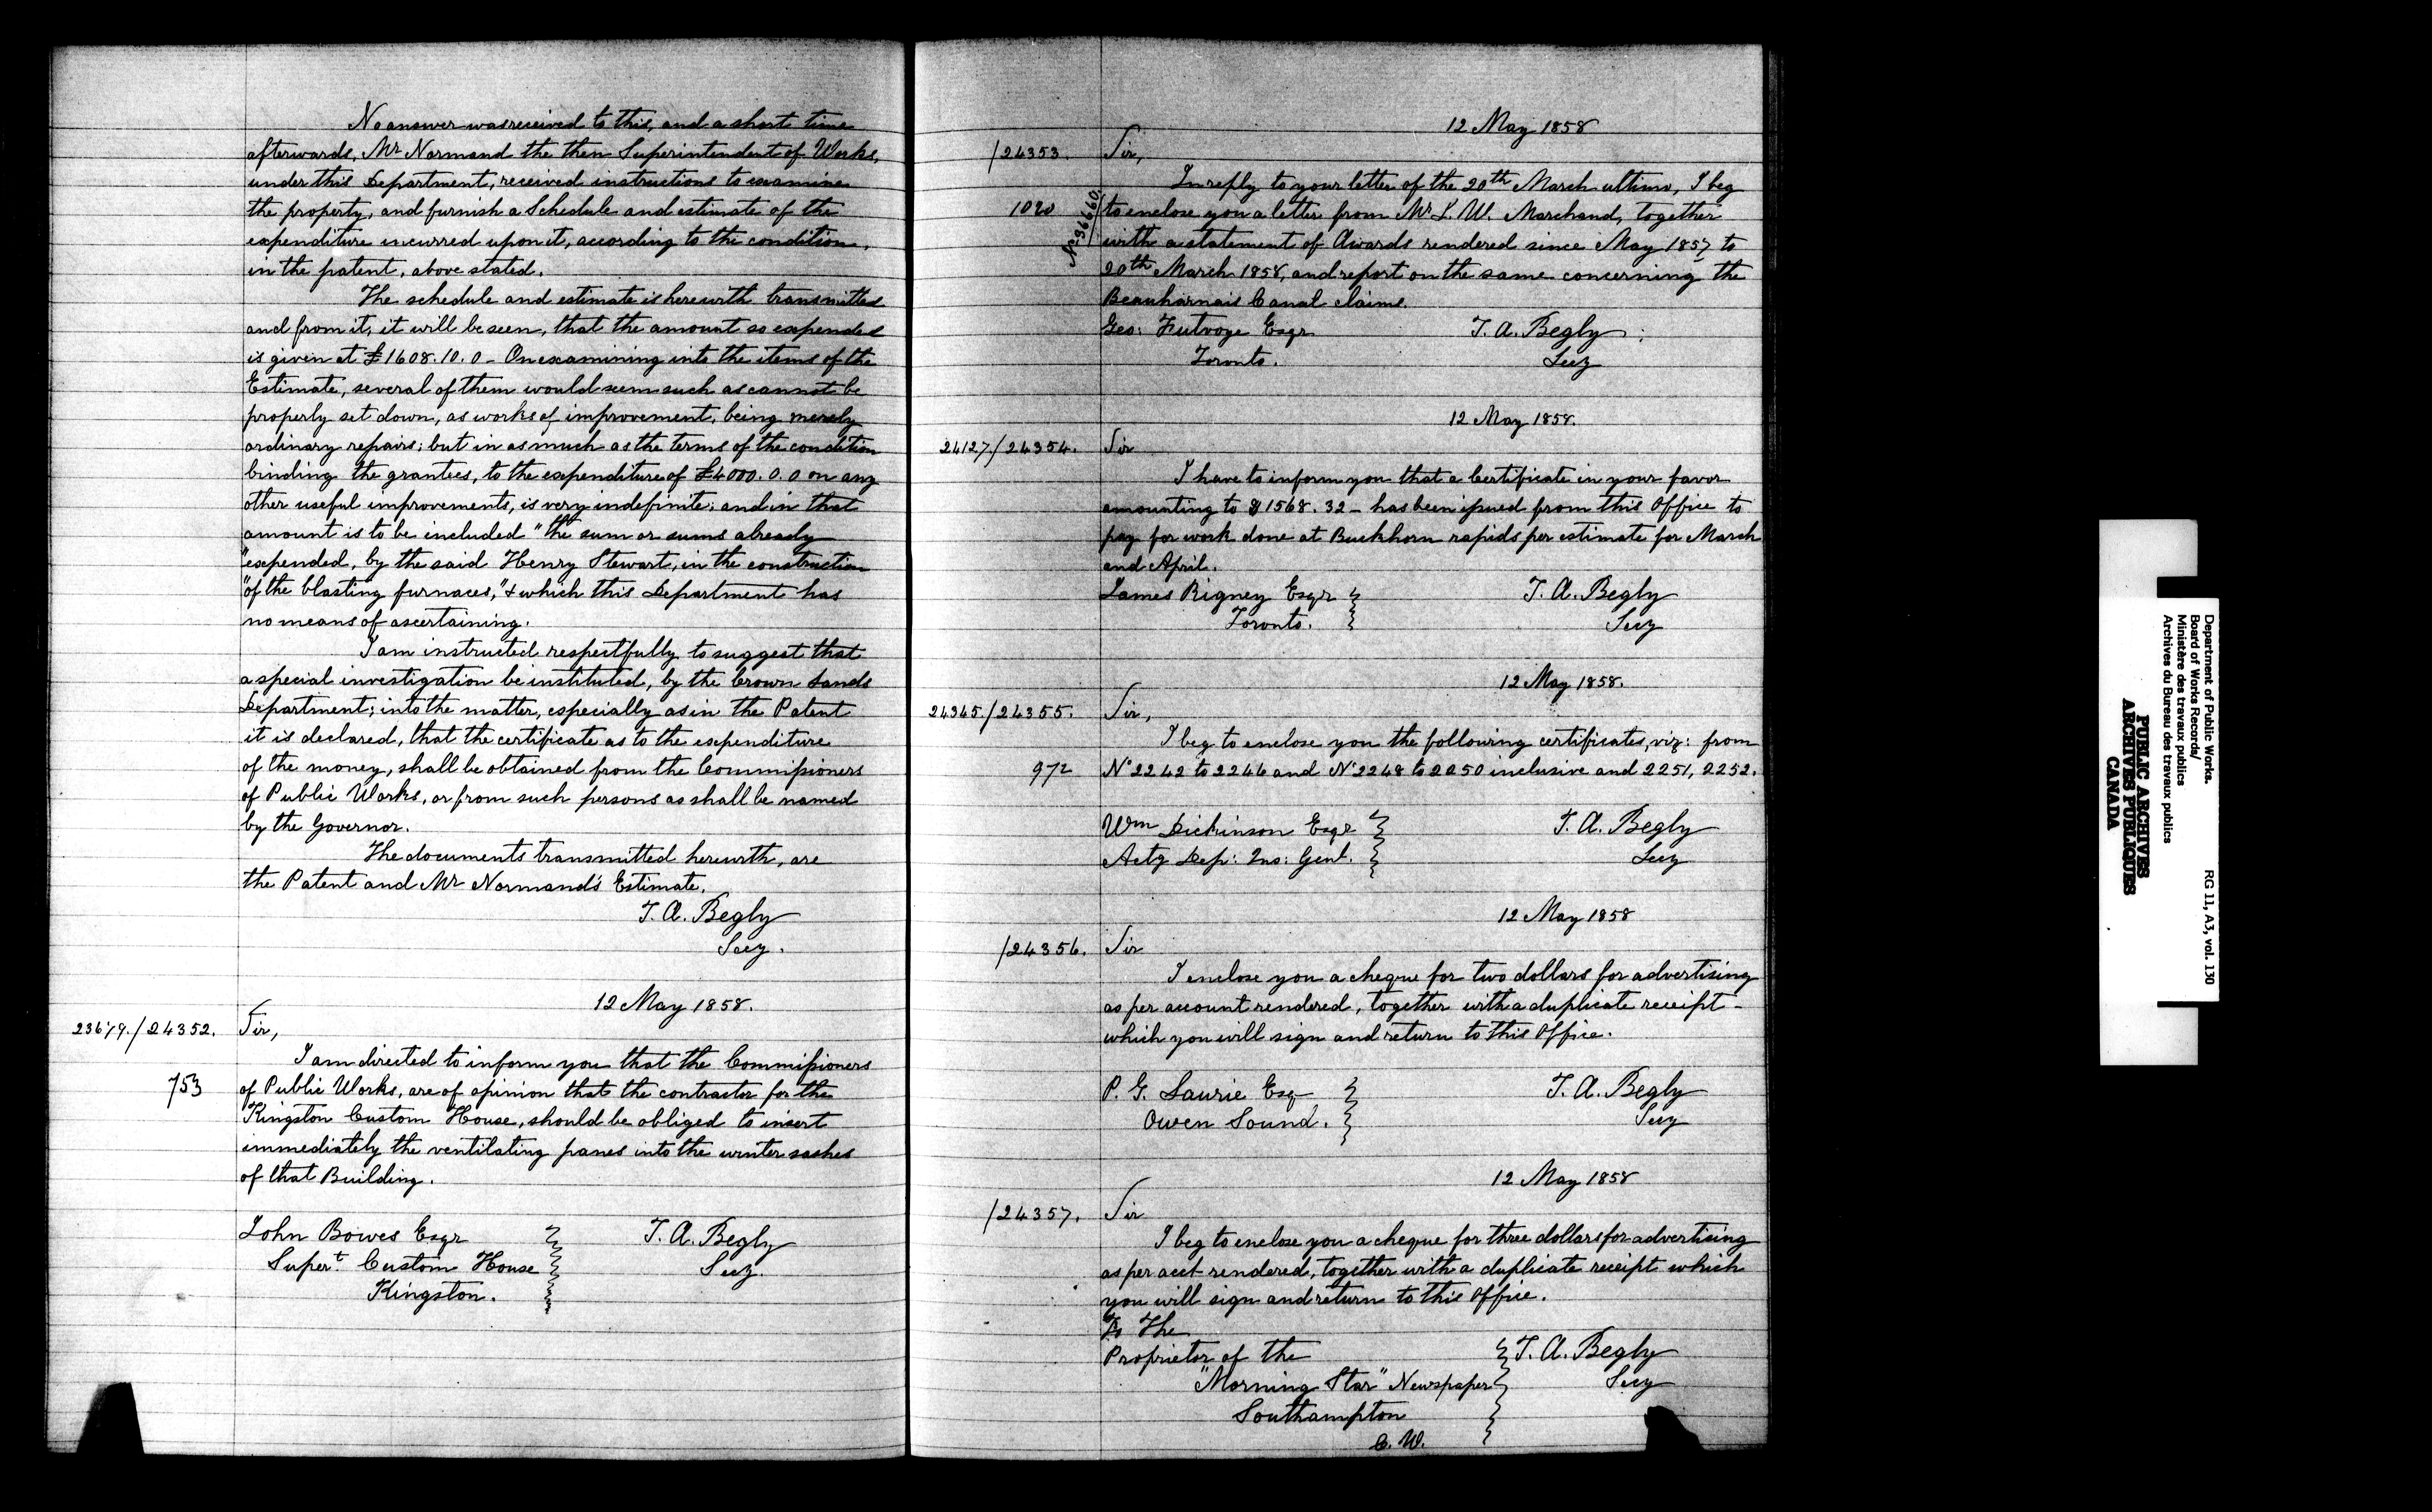 No answer was received to this, and a short time
afterwards, Mr Normand the then Superintendent of Works,
under this Department, received instructions to examine
the property, and furnish a Schedule and estimate of the
expenditure incurred upon it, according to the condition,
in the patent, above stated.
The schedule and estimate is herewith transmitted
and from it, it will be seen, that the amount so expended
is given at £1608.10.0 - On examining into the items of the
Estimate, several of them would seem such as cannot be
properly set down, as works of improvement, being merely
ordinary repairs; but in as much as the terms of the condition
binding the grantees, to the expenditure of £4000.0.0 on any
other useful improvements, is very indefinite; and in that
amount is to be included "the sum or sums already
"expended, by the said Henry Stewart, in the construction
"of the blasting furnaces," & which this Department has
no means of ascertaining.
I am instructed respectfully to suggest that
a special investigation be instituted, by the Crown Lands
Department; into the matter, especially as in the Patent
it is declared, that the certificate as to the expenditure
of the money, shall be obtained from the Commissioners
of Public Works, or from such persons as shall be named
by the Governor.
The documents transmitted herewith, are
the Patent and Mr Normand's Estimate.
T. A. Begly
Secy.
12 May 1858.
23679./24352. Sir,
I am directed to inform you that the Commissioners
753 of Public Works, are of opinion that the contractor for the
Kingston Custom House, should be obliged to insert
immediately the ventilating panes into the winter sashes
of that Building.
John Bowes Esqr T. A. Begly
Supert. Custom House Secy.
Kingston.
12 May 1858
/24353. Sir,
In reply to your letter of the 20th March ultimo, I beg
1020 No 36660. to enclose you a letter from Mr L. W. Marchand, together
with a statement of Awards rendered since May 1857 to
20th March 1858, and report on the same concerning the
Beauharnais Canal claims.
Geo: Futvoye Esqr T. A. Begly
Toronto. Secy
12 May 1858.
24127./24354. Sir
I have to inform you that a Certificate in your favor
amounting to $1568.32 - has been issued from this Office to
pay for work done at Buckhorn rapids per estimate for March
and April.
James Rigney Esqr T. A. Begly
Toronto. Secy
12 May 1858.
24345./24355. Sir,
I beg to enclose you the following certificates, viz: from
972 No 2242 to 2246 and No 2248 to 2250 inclusive and 2251, 2252.
Wm Dickinson Esqr T. A. Begly
Actg Dep: Ins: Genl. Secy
12 May 1858
/24356. Sir
I enclose you a cheque for two dollars for advertising
as per account rendered, together with a duplicate receipt -
which you will sign and return to this Office.
P. G. Laurie Esq T. A. Begly
Owen Sound. Secy
12 May 1858
/24357. Sir
I beg to enclose you a cheque for three dollars for advertising
as per acct rendered, together with a duplicate receipt which
you will sign and return to this Office.
To The
Proprietor of the T. A. Begly
"Morning Star" Newspaper Secy
Southampton
C. W.
Department of Public Works.
Board of Works Records/
Ministère des travaux publics
Archives du Bureau des travaux publics
RG 11, A3, vol. 130
PUBLIC ARCHIVES
ARCHIVES PUBLIQUES
CANADA